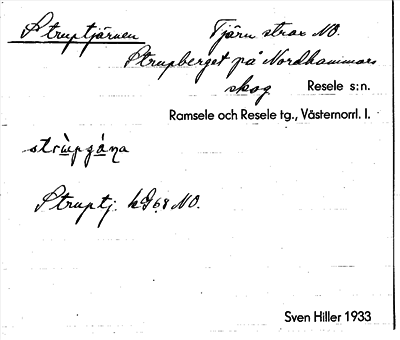 Struptjärnen Tjärn strax NO.
Strupberget på Nordhammars
skog Resele s:n.
Ramsele och Resele tg., Västernorrl. l.
strùpɡáṇa
Struptj. kG68 NO.
Sven Hiller 1933